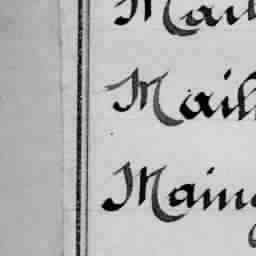 Mail
Mail
Maing